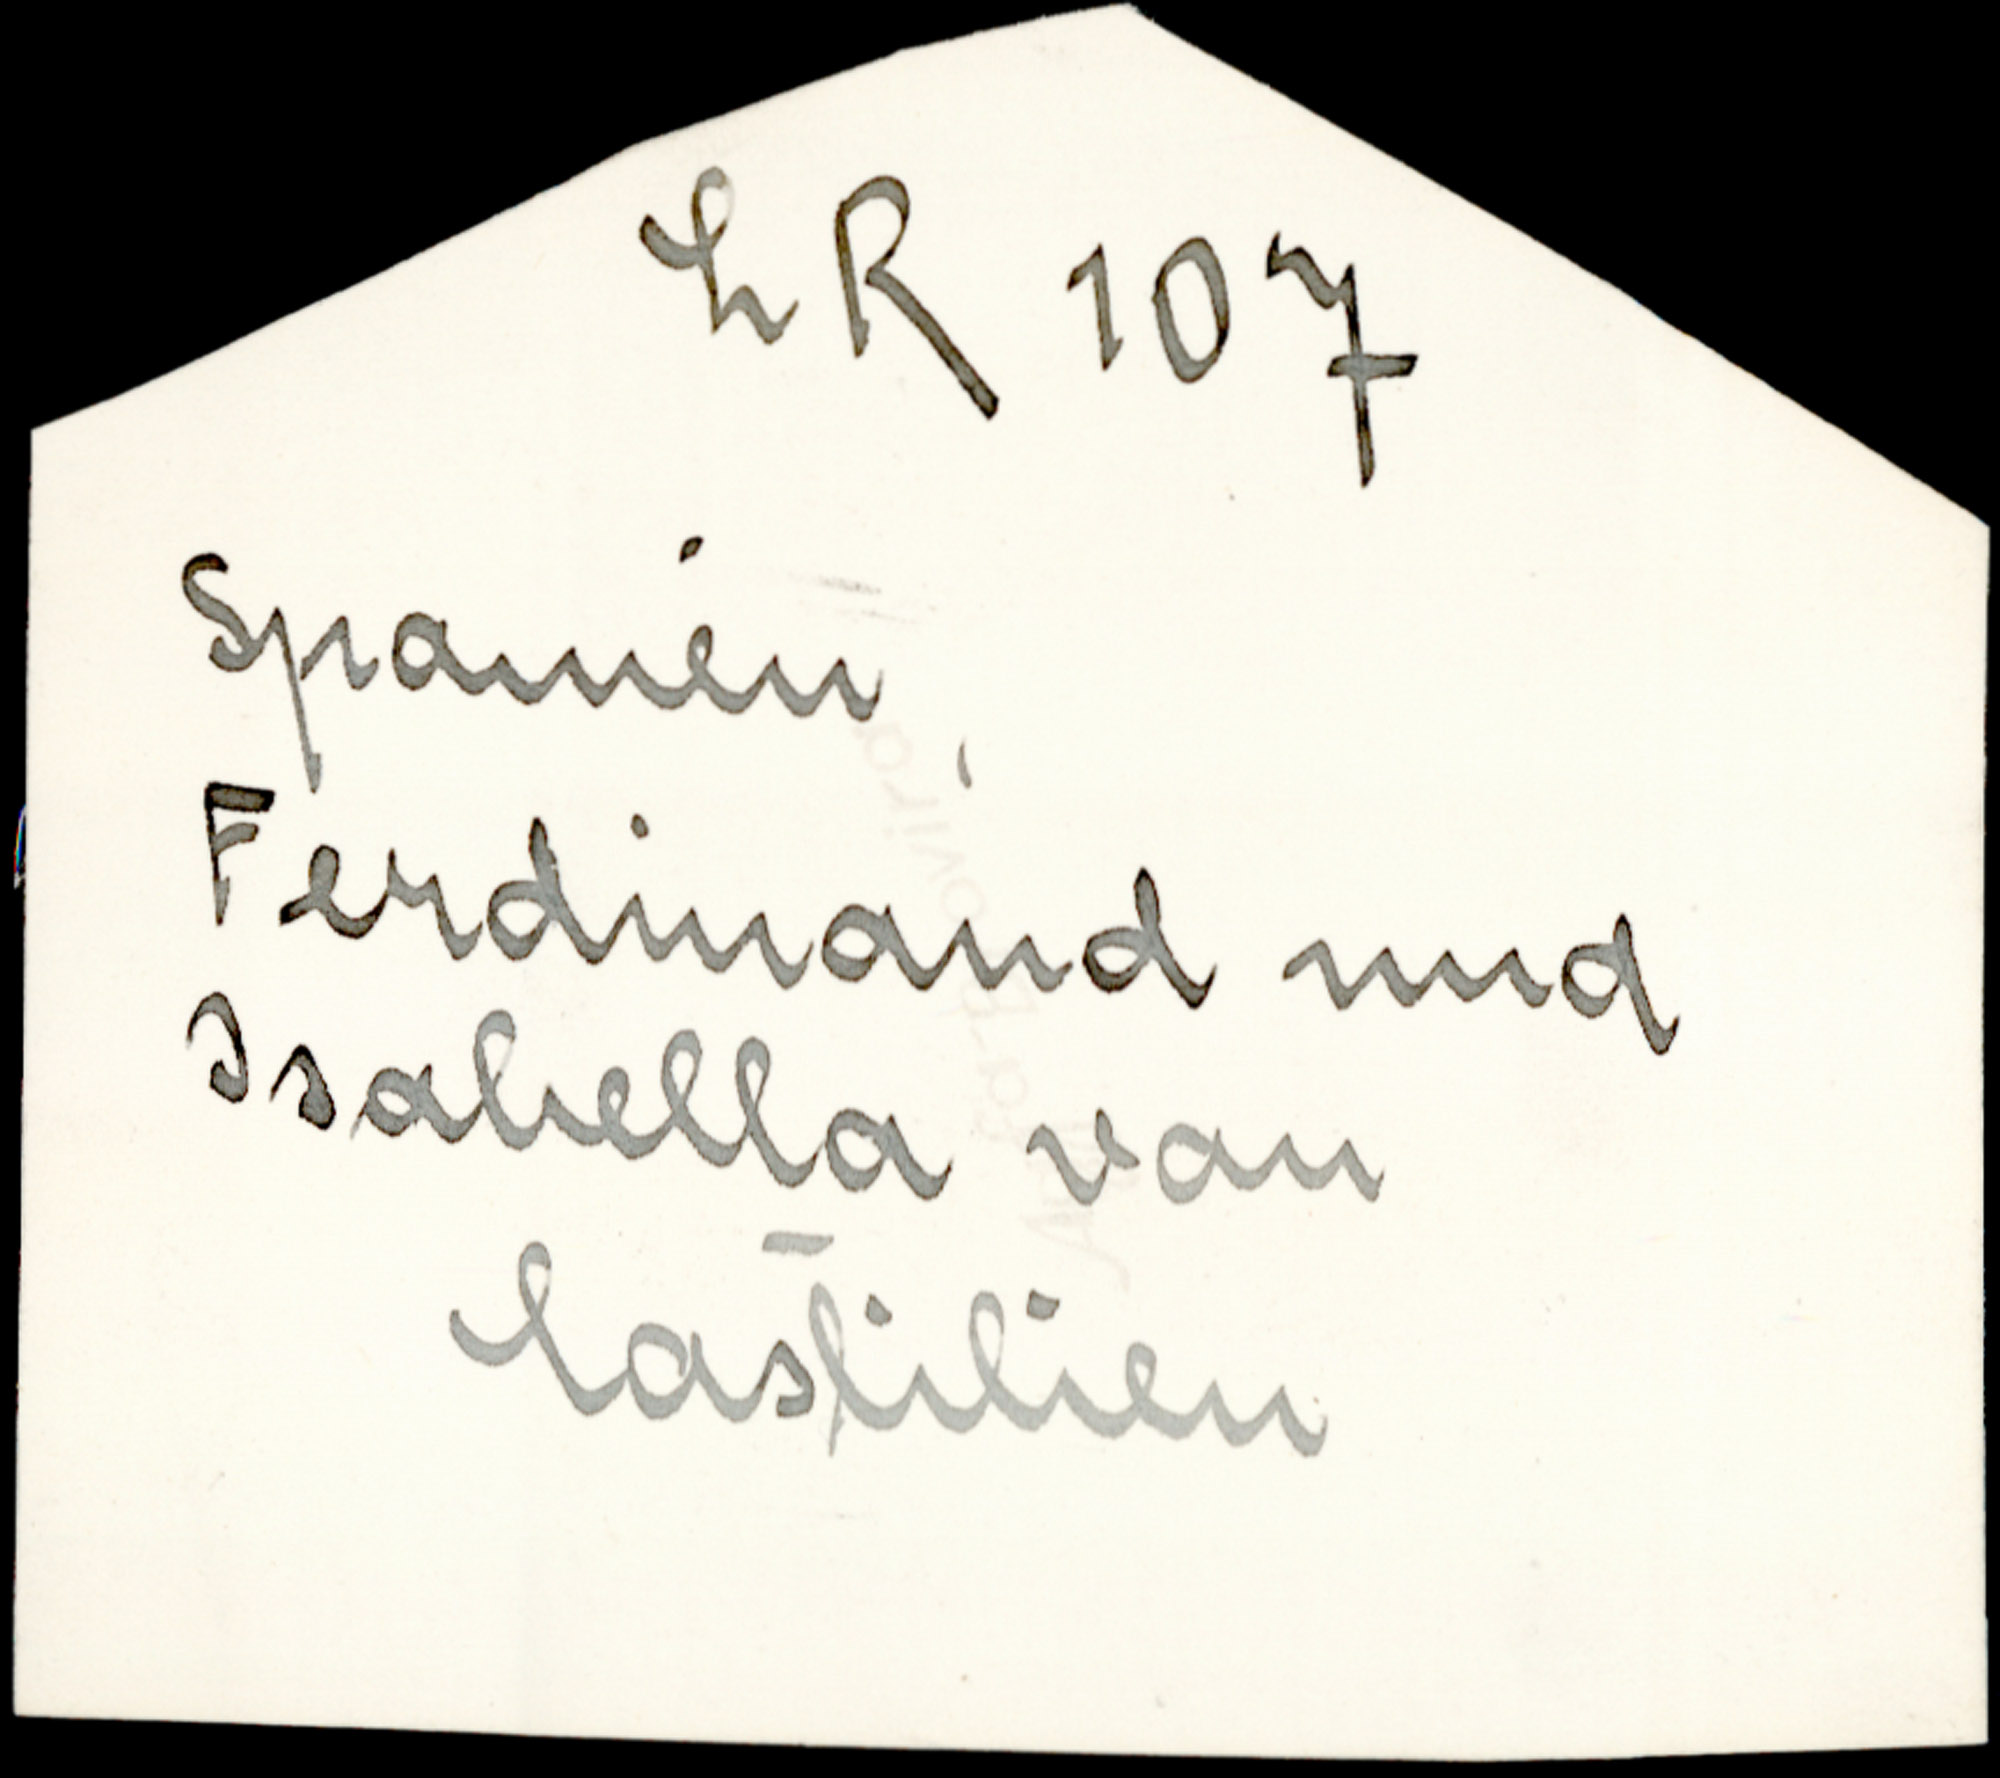 LR 107
Spanien,
Ferdinand und
Isabella von
Castilien